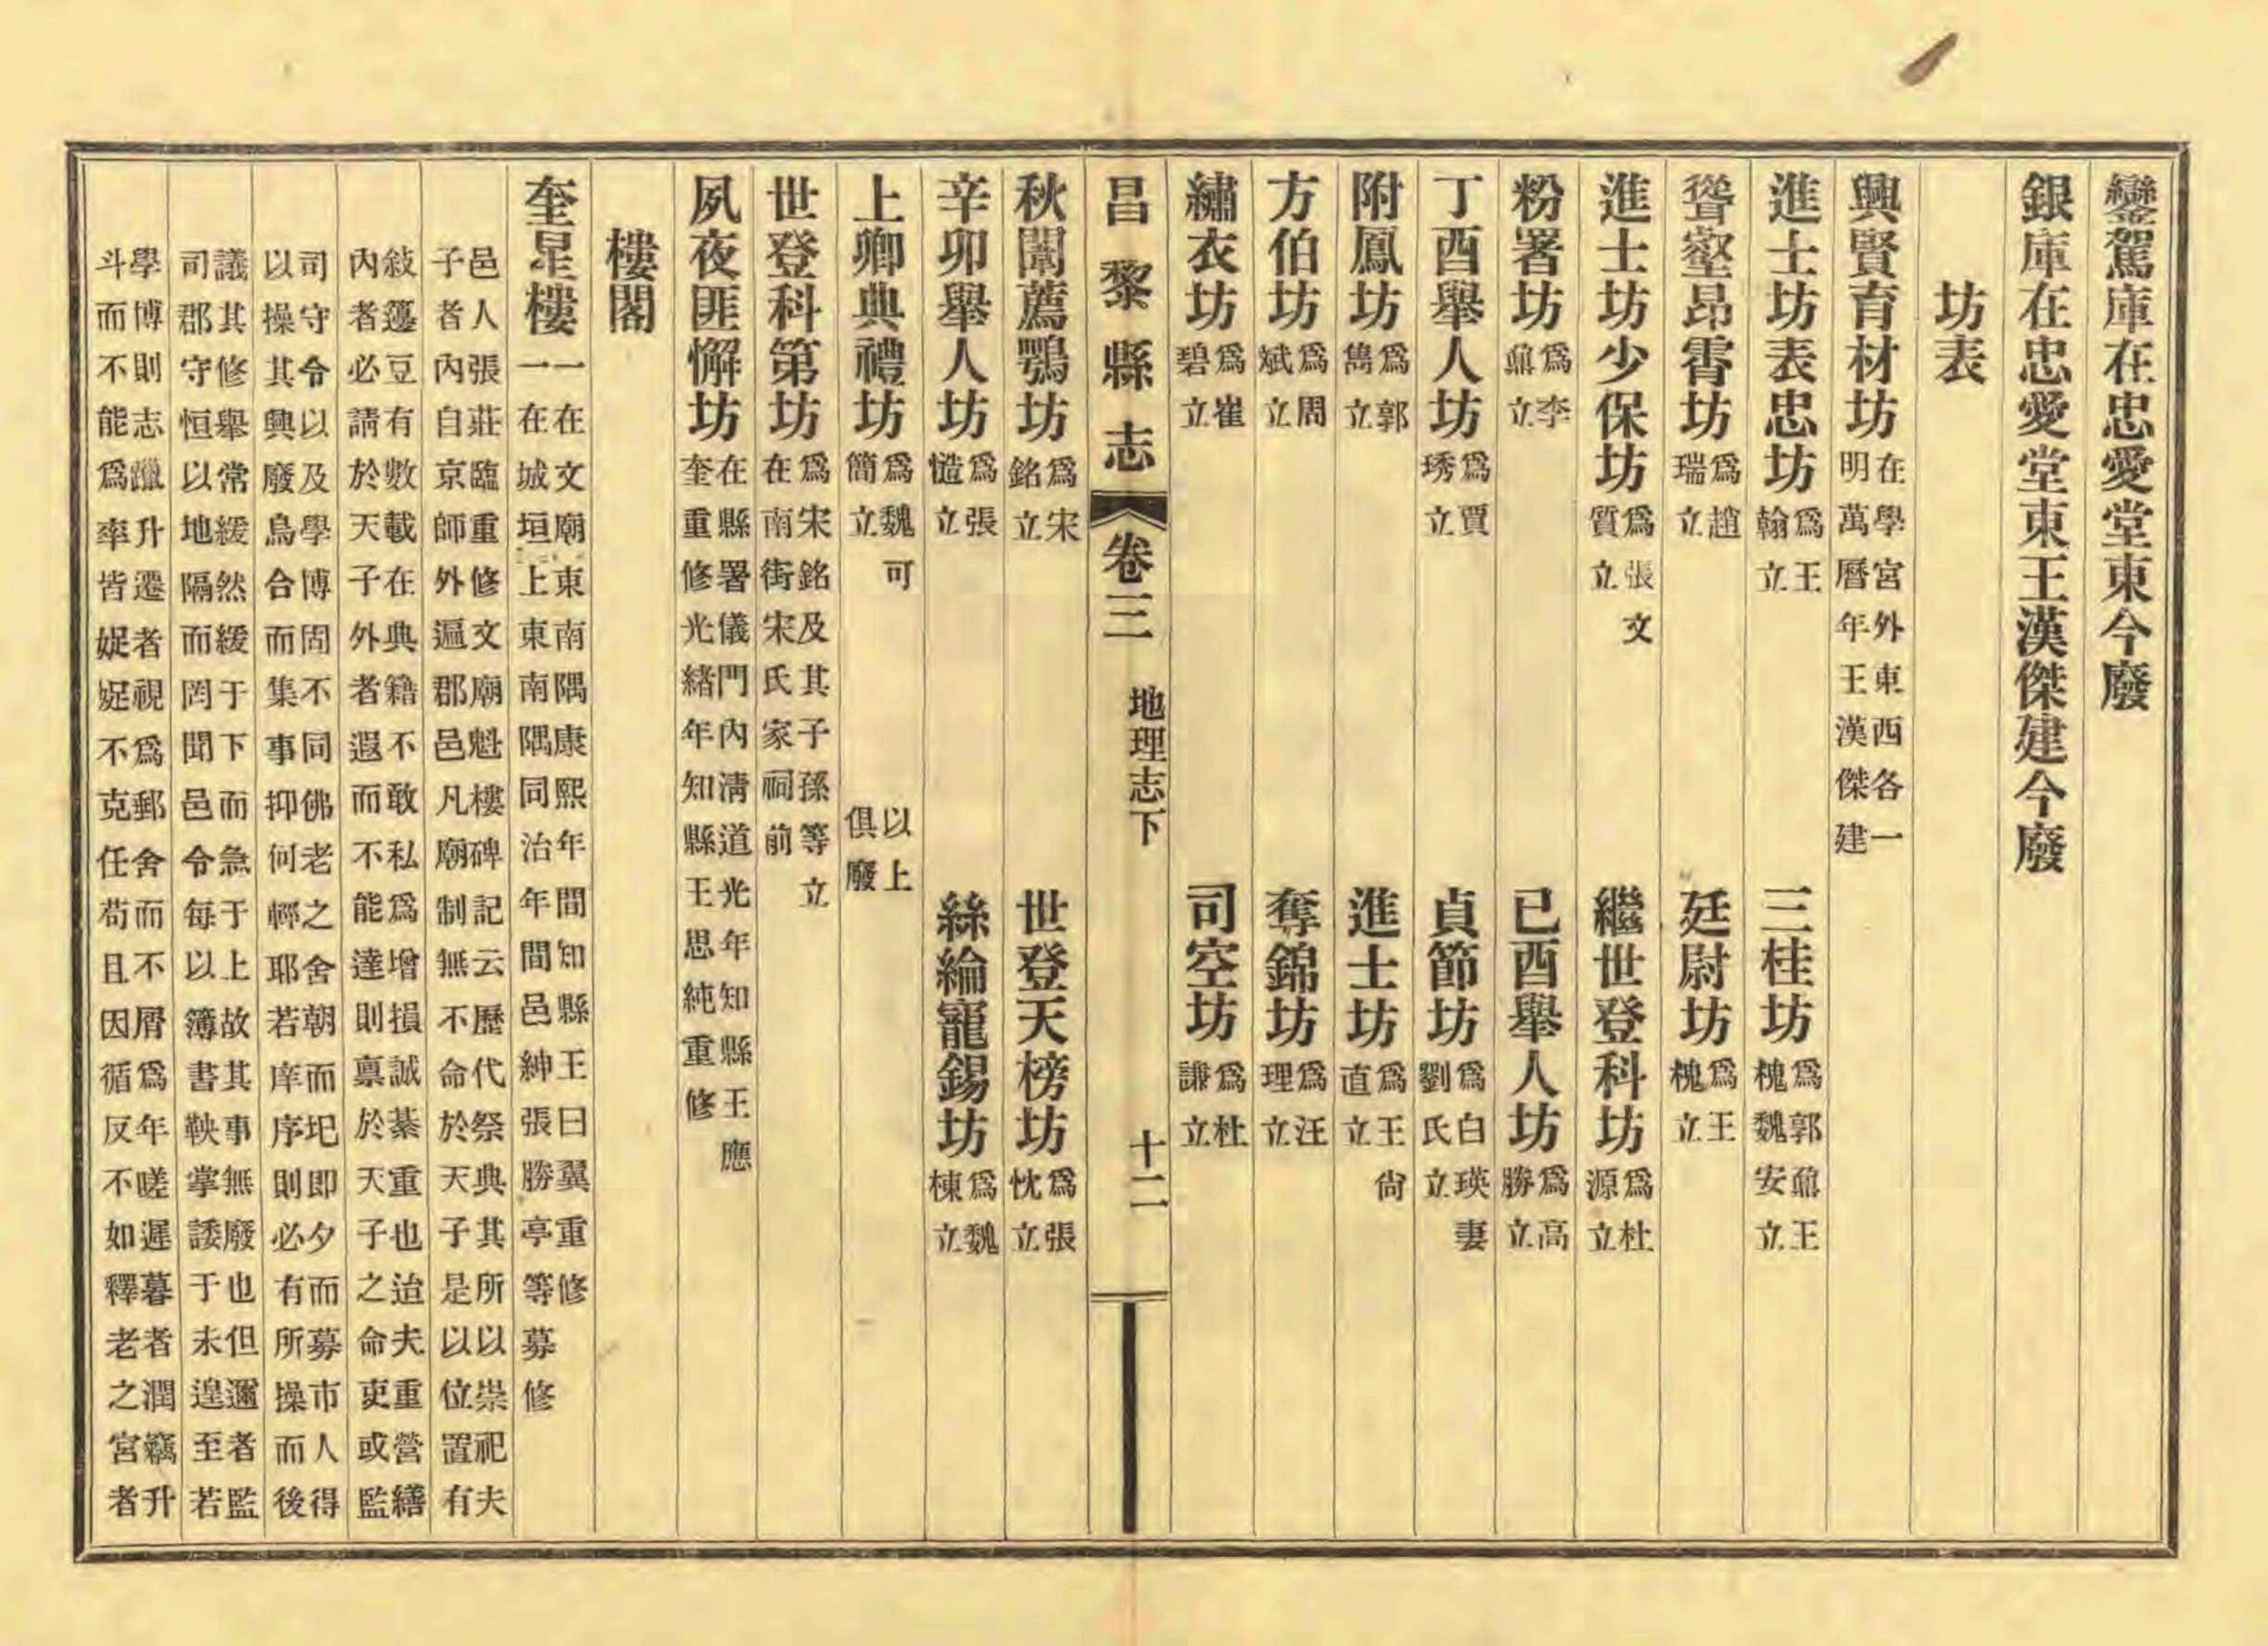 鑾駕庫在忠愛堂東今廢
銀庫在忠愛堂東王漢傑建今廢
坊表
興賢育材坊在學宮外東西各一
明萬曆年王漢傑建
進士坊表忠坊為王
翰立
三桂坊為郭鼐王
槐魏安立
聳壑昂霄坊為趙
瑞立
廷尉坊為王
槐立
進士坊少保坊為張文
質立
繼世登科坊為杜
源立
粉署坊為李
鼐立
已酉舉人坊為高
勝立
丁酉舉人坊為賈
琇立
貞節坊為白瑛妻
劉氏立
附鳳坊為郭
雋立
進士坊為王尙
直立
方伯坊為周
斌立
奪錦坊為汪
理立
繡衣坊為崔
碧立
司空坊為杜
謙立
昌黎縣志 卷三 地理志下 十二
秋闈薦鶚坊為宋
銘立
世登天榜坊為張
忱立
辛卯舉人坊為張
慥立
絲綸寵錫坊為魏
棟立
上卿典禮坊為魏可
簡立
以上
俱廢
世登科第坊為宋銘及其子孫等立
在南街宋氏家祠前
夙夜匪懈坊在縣署儀門內清道光年知縣王應
奎重修光緒年知縣王思純重修
樓閣
奎星樓一在文廟東南隅康熙年間知縣王曰翼重修
一在城垣上東南隅同治年年間邑紳張勝亭等募修
邑人張莊臨重修文廟魁樓碑記云歷代祭典其所以崇祀夫
子者內自京師外遍郡邑凡廟制無不命於天子是以位置有
敍籩豆有數載在典籍不敢私為增損誠綦重也治夫重營繕
內者必請於天子外者遐而不能達則禀於天子之命吏或監
司守令以及學博固不同佛老之舍朝而圯即夕而募市人得
以操其興廢烏合而集事抑何輕耶若庠序則必有所操而後
議其修舉常緩然緩于下而急于上故其事無廢也但邇者監
司郡守恒以地隔而罔聞邑令每以簿書鞅掌諉于未遑至若
學博則志躐升遷者視為郵舍而不屑為年嗟遲暮者潤竊升
斗而不能為率皆娖娖不克任荀且因循反不如釋老之宮者